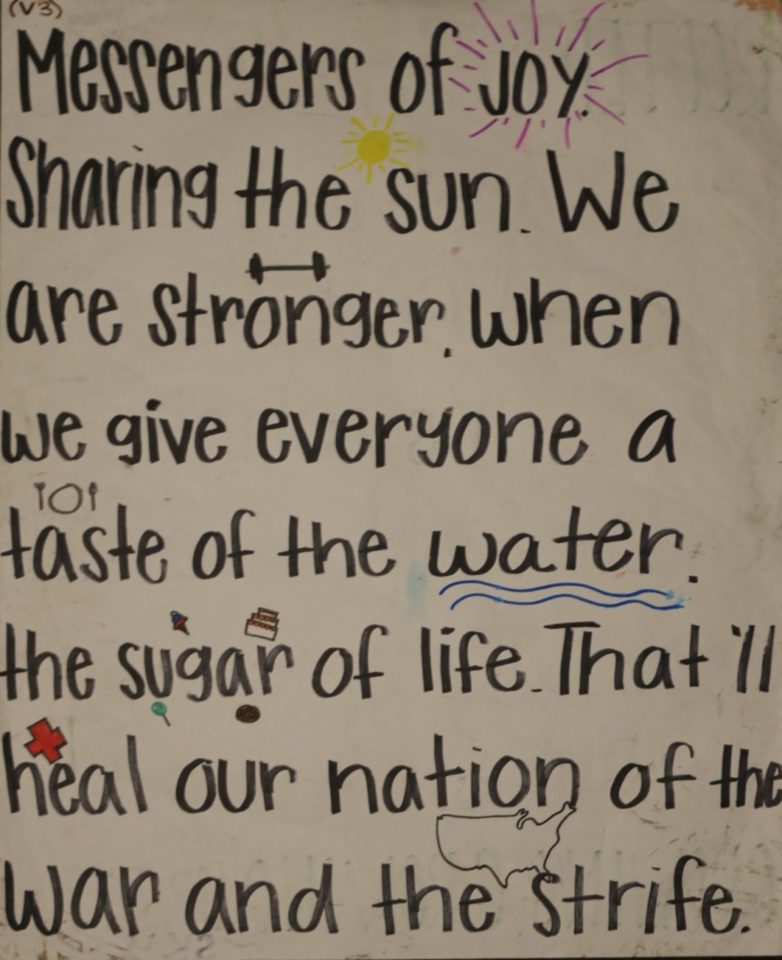 (V3)
Messengers of joy.
Sharing the sun. We
are stronger. when
we give everyone a
taste of the water.
the sugar of life. That'll
heal our nation of the
war and the strife.